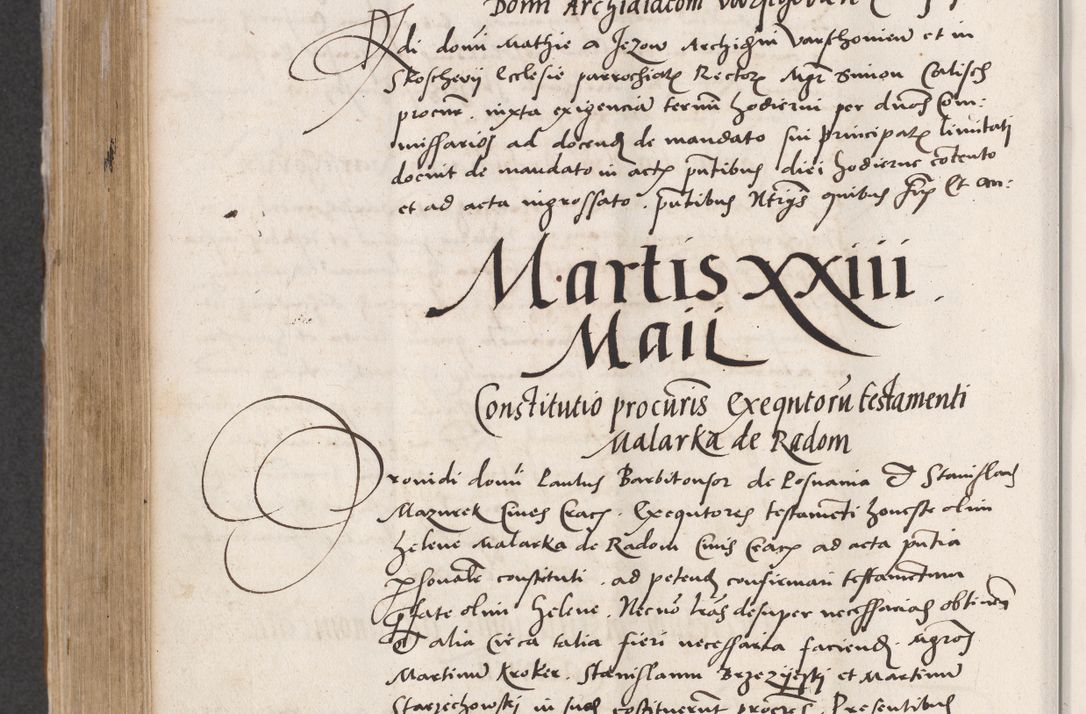 Domi Archidiaconi
Adi domi Mathie a Jezow Archidni Varschovien et in
Skoschevij Ecclesie parrochialis Rectoris Mgr Simon Calisch
procur. iuxta exigenciā termi hodierni per dnos Com-
missarios ad docend de mandato sui principalis limitati
docuit de mandato in actis pntibus diei hodierne cōtento
et ad acta ingrossato. pntibus Ntrijs quibus s{up} Et an:
Martis XXiii
Maii
Constitutio procuris Exeqntorū testamenti
Malarka de Radom
Providi domi Paulus Barbitonsor de Posnania & Stanislaus
Mazurek Cives Crac. Exequtores testamēti honeste olim
Helene Malarka de Radom Civis Crac ad acta pntia
psonalr constituti. ad petend confirmari testamentum
pfate olim Helene. Necnō lras desuper necessarias obtinen
& alia circa talia fieri necessaria faciend. Mgros
Martinū Kroker. Stanislaum Brzezijnski et Martinū
Starzechowski in suos constituerut procres. Presentibus